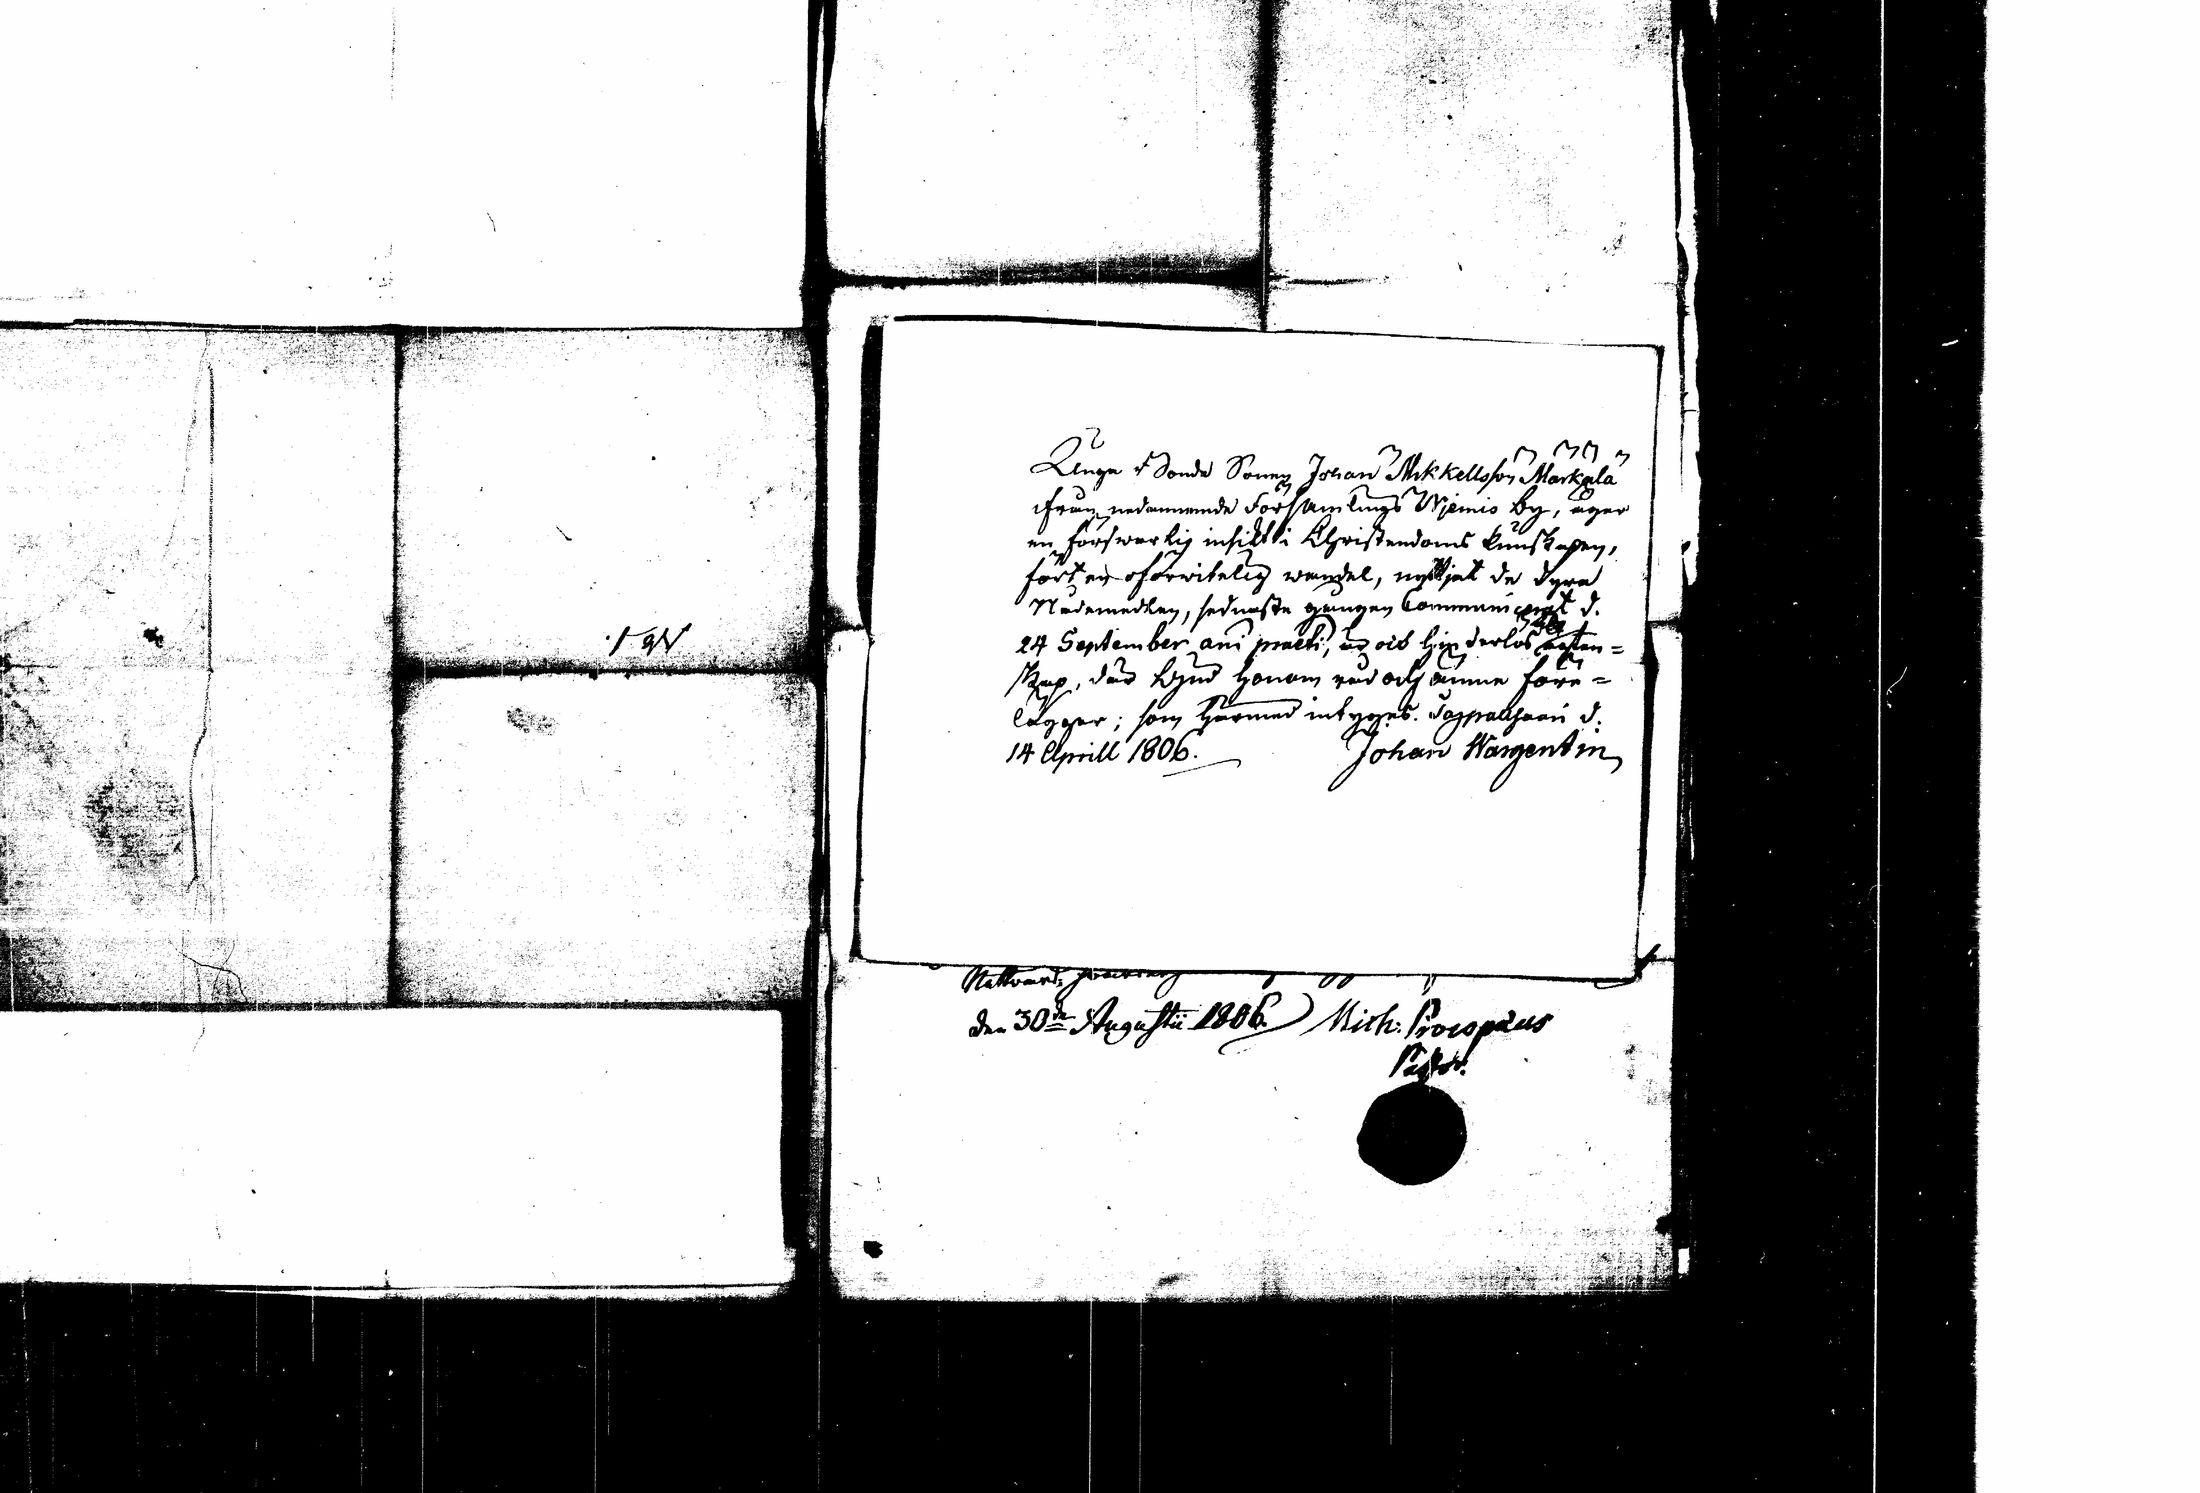 N:o 1.
Unge Bonde Sonen Johan Mikkelsson Markula
ifrån nedannämde Församlings Wjemis by, äger
en förswarlig insikt i Christendoms kunskapen,
fört en oförwitelig wandel, nyttjat de dyra
Nådemedlen, sednaste gången Communicerat d.
24 September ani praeti, är ock hinderlös ägten=
skap, där Gud honom råd och ämne före=
lägger; som härmed intygas. d.
14 Aprill 1806. Johan Wargentin
Nattwards
den 30de Augustii 1806. Mich: Procopæus
Pastor.